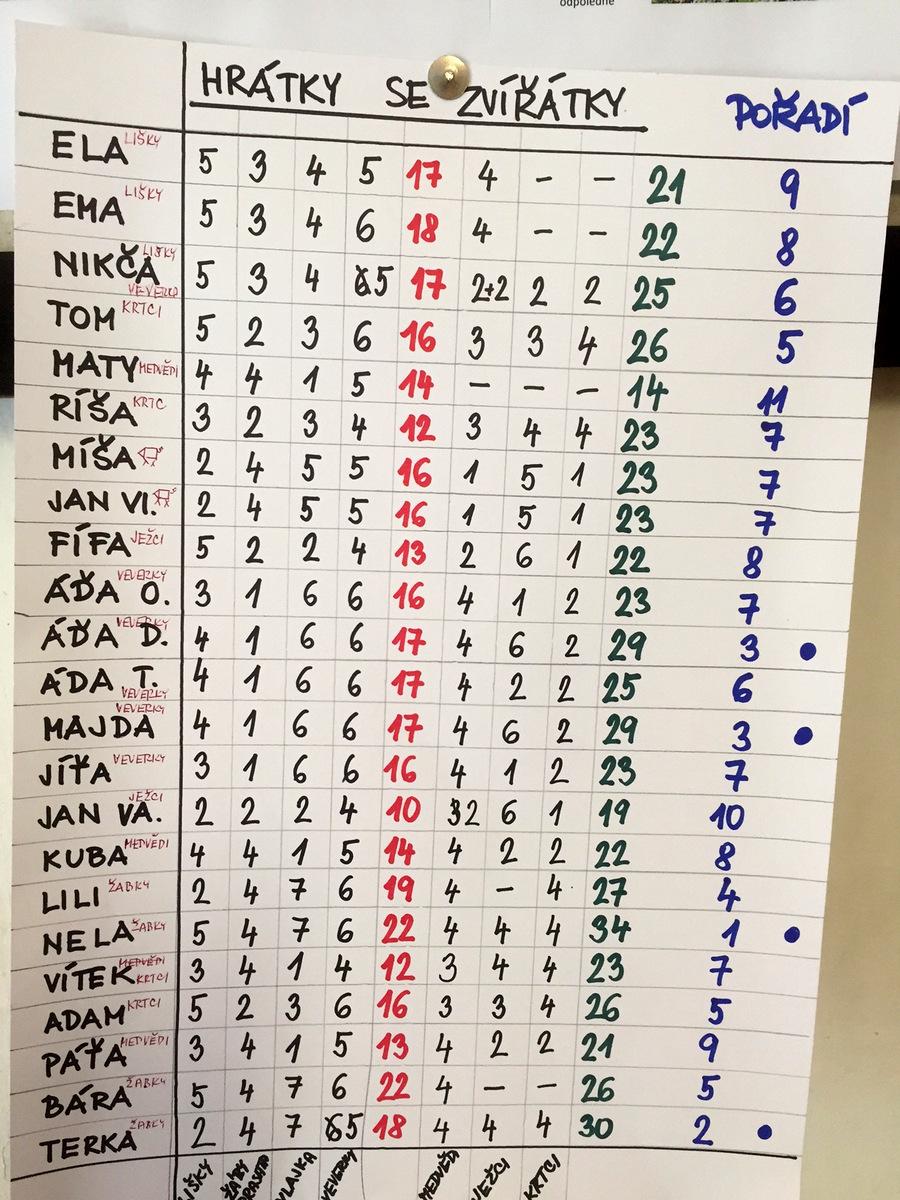 odpoledne
HRÁTKY SE ZVÍŘÁTKY POŘADÍ
ELA LIŠKY 5 3 4 5 17 4 – – 21 9
EMA LIŠKY 5 3 4 6 18 4 – – 22 8
NIKČA LIŠKY VEVERKY 5 3 4 5 17 2+2 2 2 25 6
TOM KRTCI 5 2 3 6 16 3 3 4 26 5
MATY MEDVĚDI 4 4 1 5 14 – – – 14 11
RÍŠA KRTC 3 2 3 4 12 3 4 4 23 7
MÍŠA 2 4 5 5 16 1 5 1 23 7
JAN VI. 2 4 5 5 16 1 5 1 23 7
FÍFA JEŽCI 5 2 2 4 13 2 6 1 22 8
ÁĎA O. VEVERKY 3 1 6 6 16 4 1 2 23 7
ÁĎA D. VEVERKY 4 1 6 6 17 4 6 2 29 3 •
ÁDA T. VEVERKY 4 1 6 6 17 4 2 2 25 6
MAJDA VEVERKY 4 1 6 6 17 4 6 2 29 3 •
JÍŤA VEVERKY 3 1 6 6 16 4 1 2 23 7
JAN VA. JEŽCI 2 2 2 4 10 2 6 1 19 10
KUBA MEDVĚDI 4 4 1 5 14 4 2 2 22 8
LILI ŽABKY 2 4 7 6 19 4 – 4 27 4
NELA ŽABKY 5 4 7 6 22 4 4 4 34 1 •
VÍTEK MEDVĚDI KRTCI 3 4 1 4 12 3 4 4 23 7
ADAM KRTCI 5 2 3 6 16 3 3 4 26 5
PÁŤA MEDVĚDI 3 4 1 5 13 4 2 2 21 9
BÁRA ŽABKY 5 4 7 6 22 4 – – 26 5
TERKA ŽABKY 2 4 7 5 18 4 4 4 30 2 •
LIŠKY ŽABY PRASATA VLAJKA VEVERKY MEDVĚDI JEŽCI KRTCI